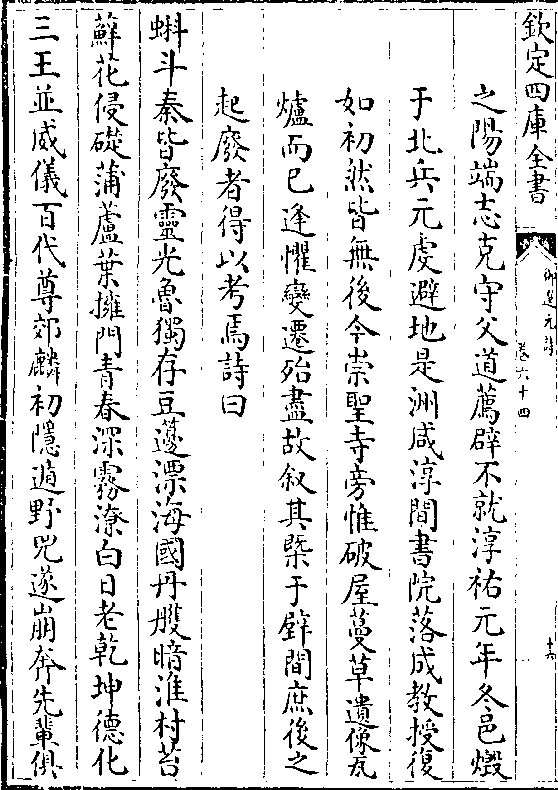 欽定四庫全書
御選元詩
卷六十四
十六
之陽端志克守父道薦辟不就淳祐元年冬邑燬
于北兵元虔避地是洲咸淳間書院落成教授復
如初然皆無後今崇聖寺旁惟破屋蔓草遺像瓦
爐而已逢懼變遷殆盡故叙其槩于壁間庶後之
起廢者得以考焉詩曰
蝌斗秦皆廢靈光魯獨存豆籩漂海國丹雘暗淮村苔
蘚花侵礎蒲蘆葉擁門青春深霧潦白日老乾坤德化
三王並威儀百代尊郊麟初隱遁野兕遂崩奔先輩俱